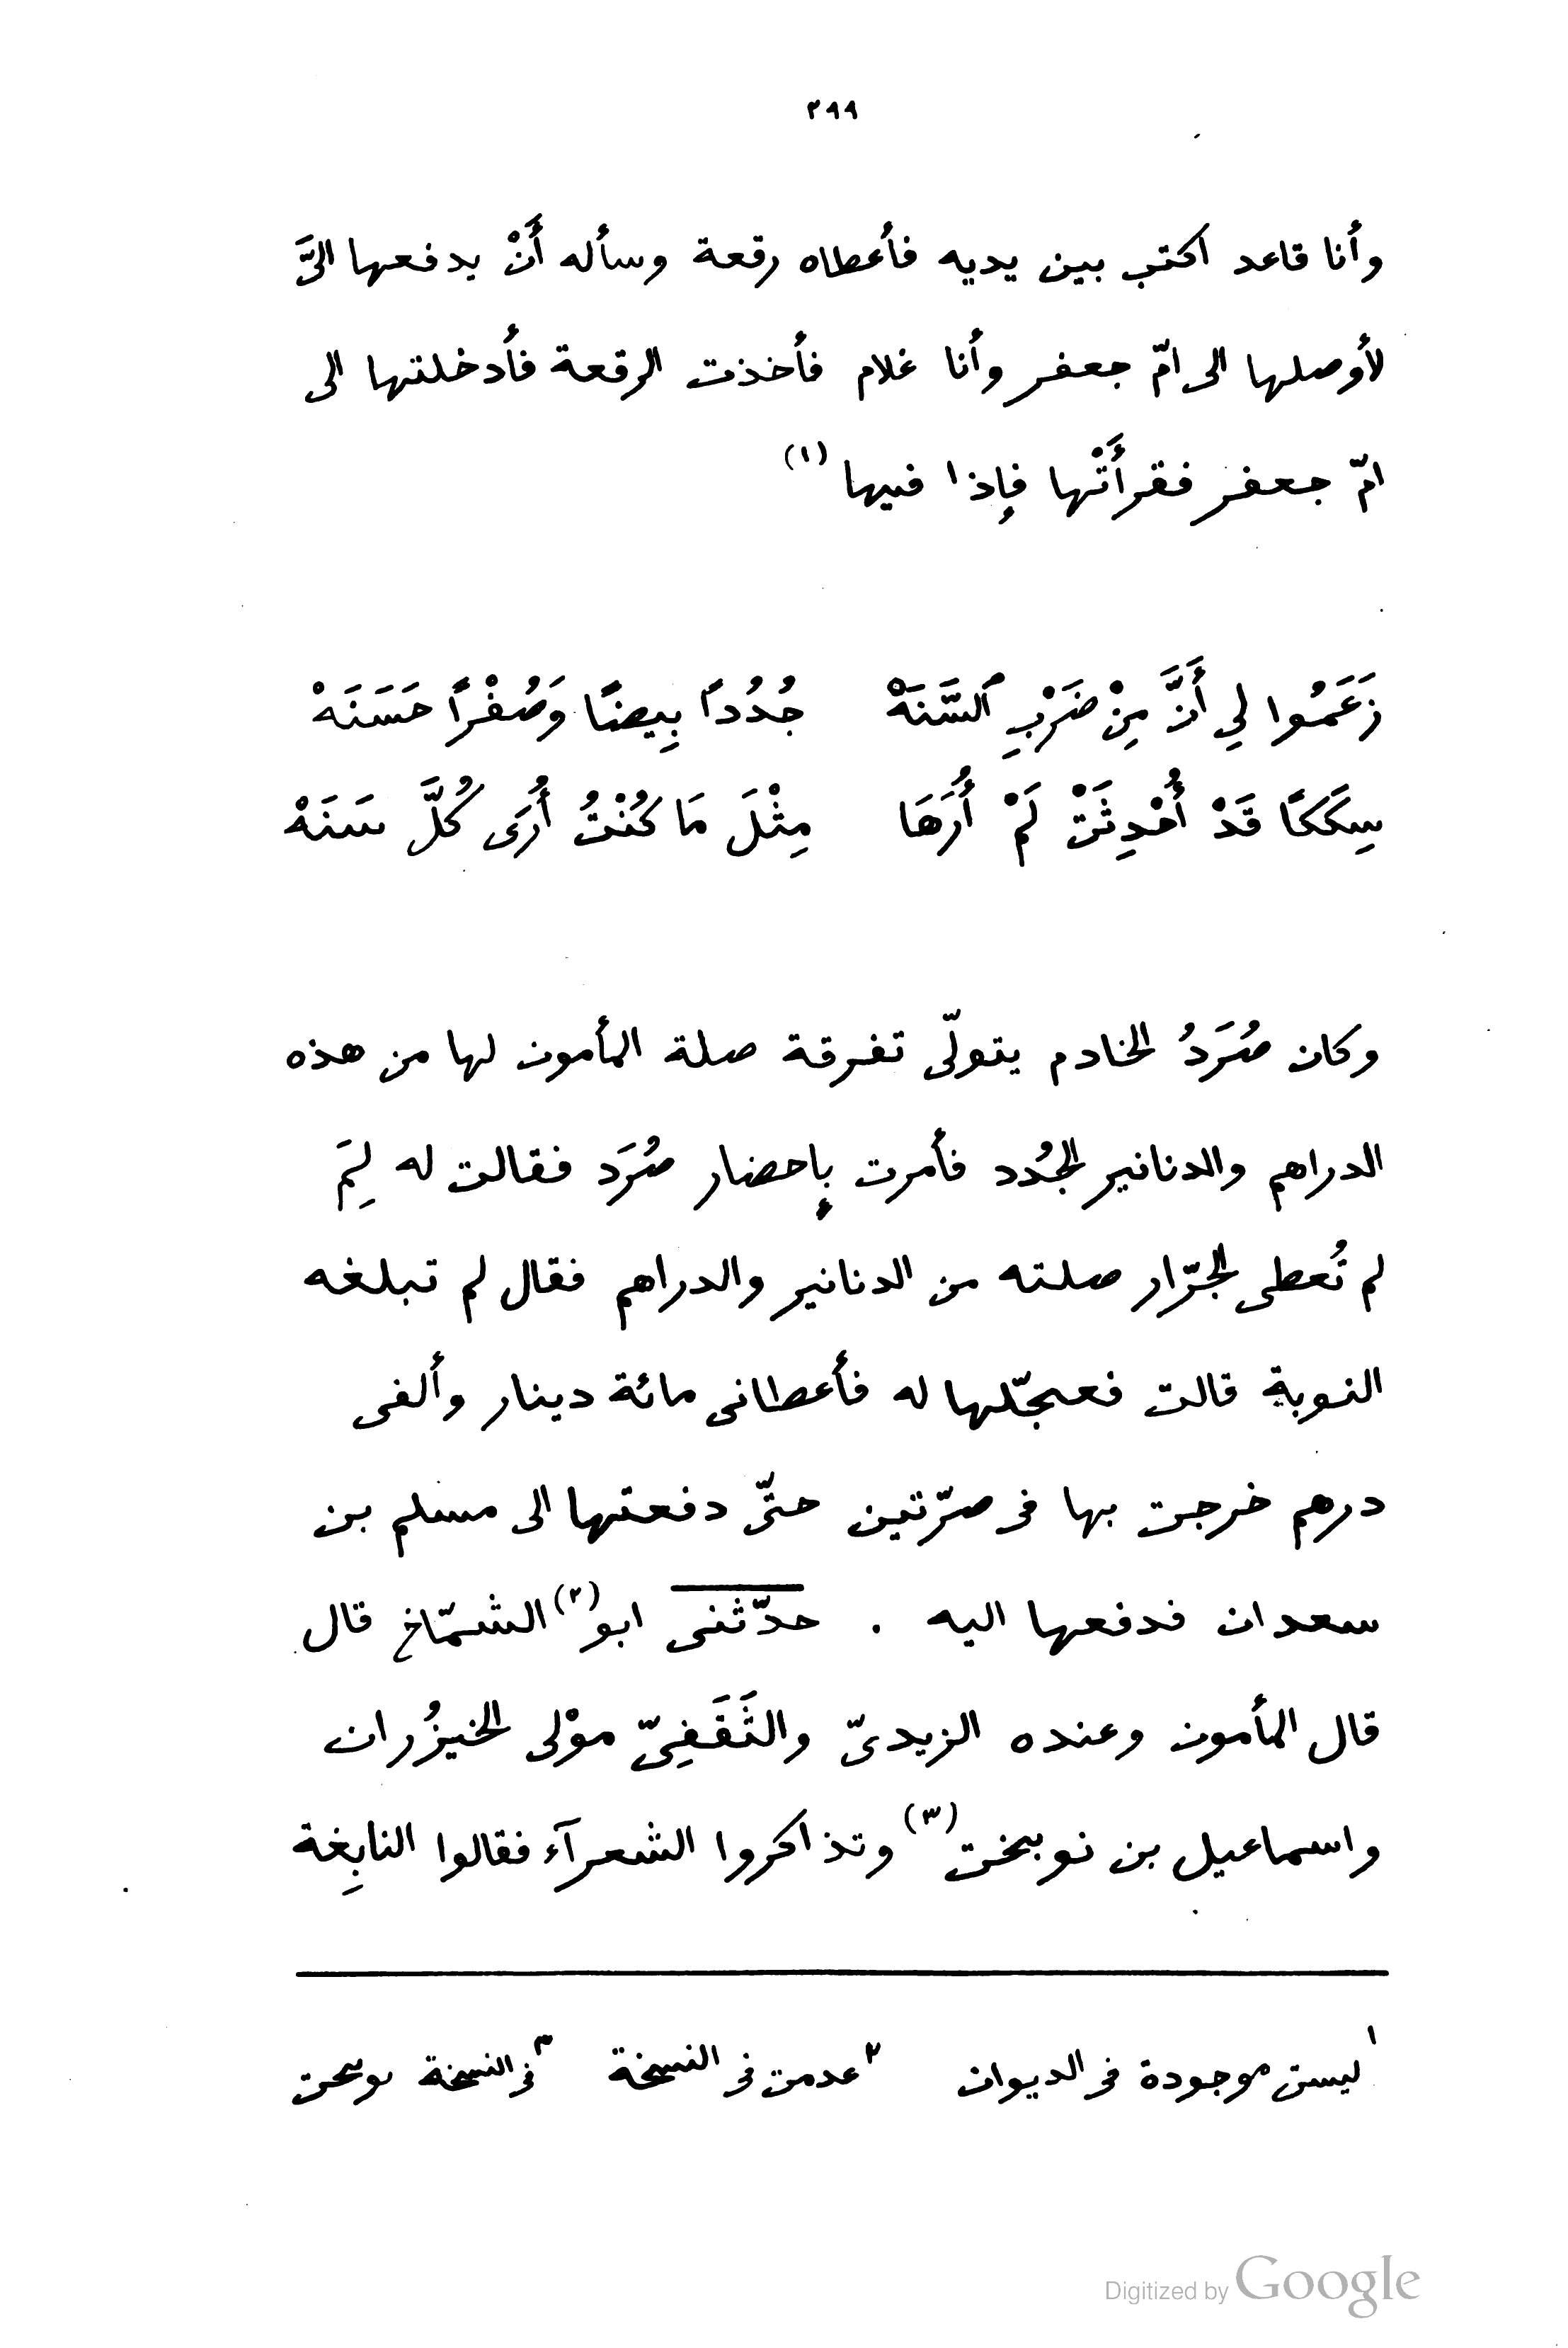 ٢٩٩
وأنا قاعد اكتب بين يديه فأعطاه رقعة وسأله أَنْ يدفعها الىَّ
لأوصلها الى امّ جعفر وأنا غلام فأخذت الرقعة فأدخلتها الى
امّ جعفر فقرأَتْها فإذا فيها (١)
زَعَمُوا لِي أَنَّ مِنْ ضَرْبِ ٱلسَّنَهْ جُدُدًا بِيضًا وَصُفْرًا حَسَنَهْ
سِكَكًا قَدْ أُحْدِثَتْ لَمْ أُرَهَا مِثْلَ مَا كُنْتُ أُرَى كُلَّ سَنَهْ
وكان صُرَدُ الخادم يتولّى تفرقة صلة المأمون لها من هذه
الدراهم والدنانير الجُدد فأمرت بإحضار صُرَد فقالت له لِمَ
لم تُعطى الجرّار صلته من الدنانير والدراهم فقال لم تبلغه
النوبة قالت فعجّلها له فأعطانى مائة دينار وألفى
درهم خرجت بها فى صرّتين حتّى دفعتها الى مسلم بن
سعدان فدفعها اليه . حدّثنى ابو (٢) الشمّاخ قال
قال المأمون وعنده الزيدىّ والثَقَفِىّ موْلى الخيزُران
واسماعيل بن نوبخت (٣) وتذاكروا الشعرآء فقالوا النابِغة
١ ليست موجودة فى الديوان ٢ عدمت فى النسخة ٣ فى النسخة
Digitized by Google